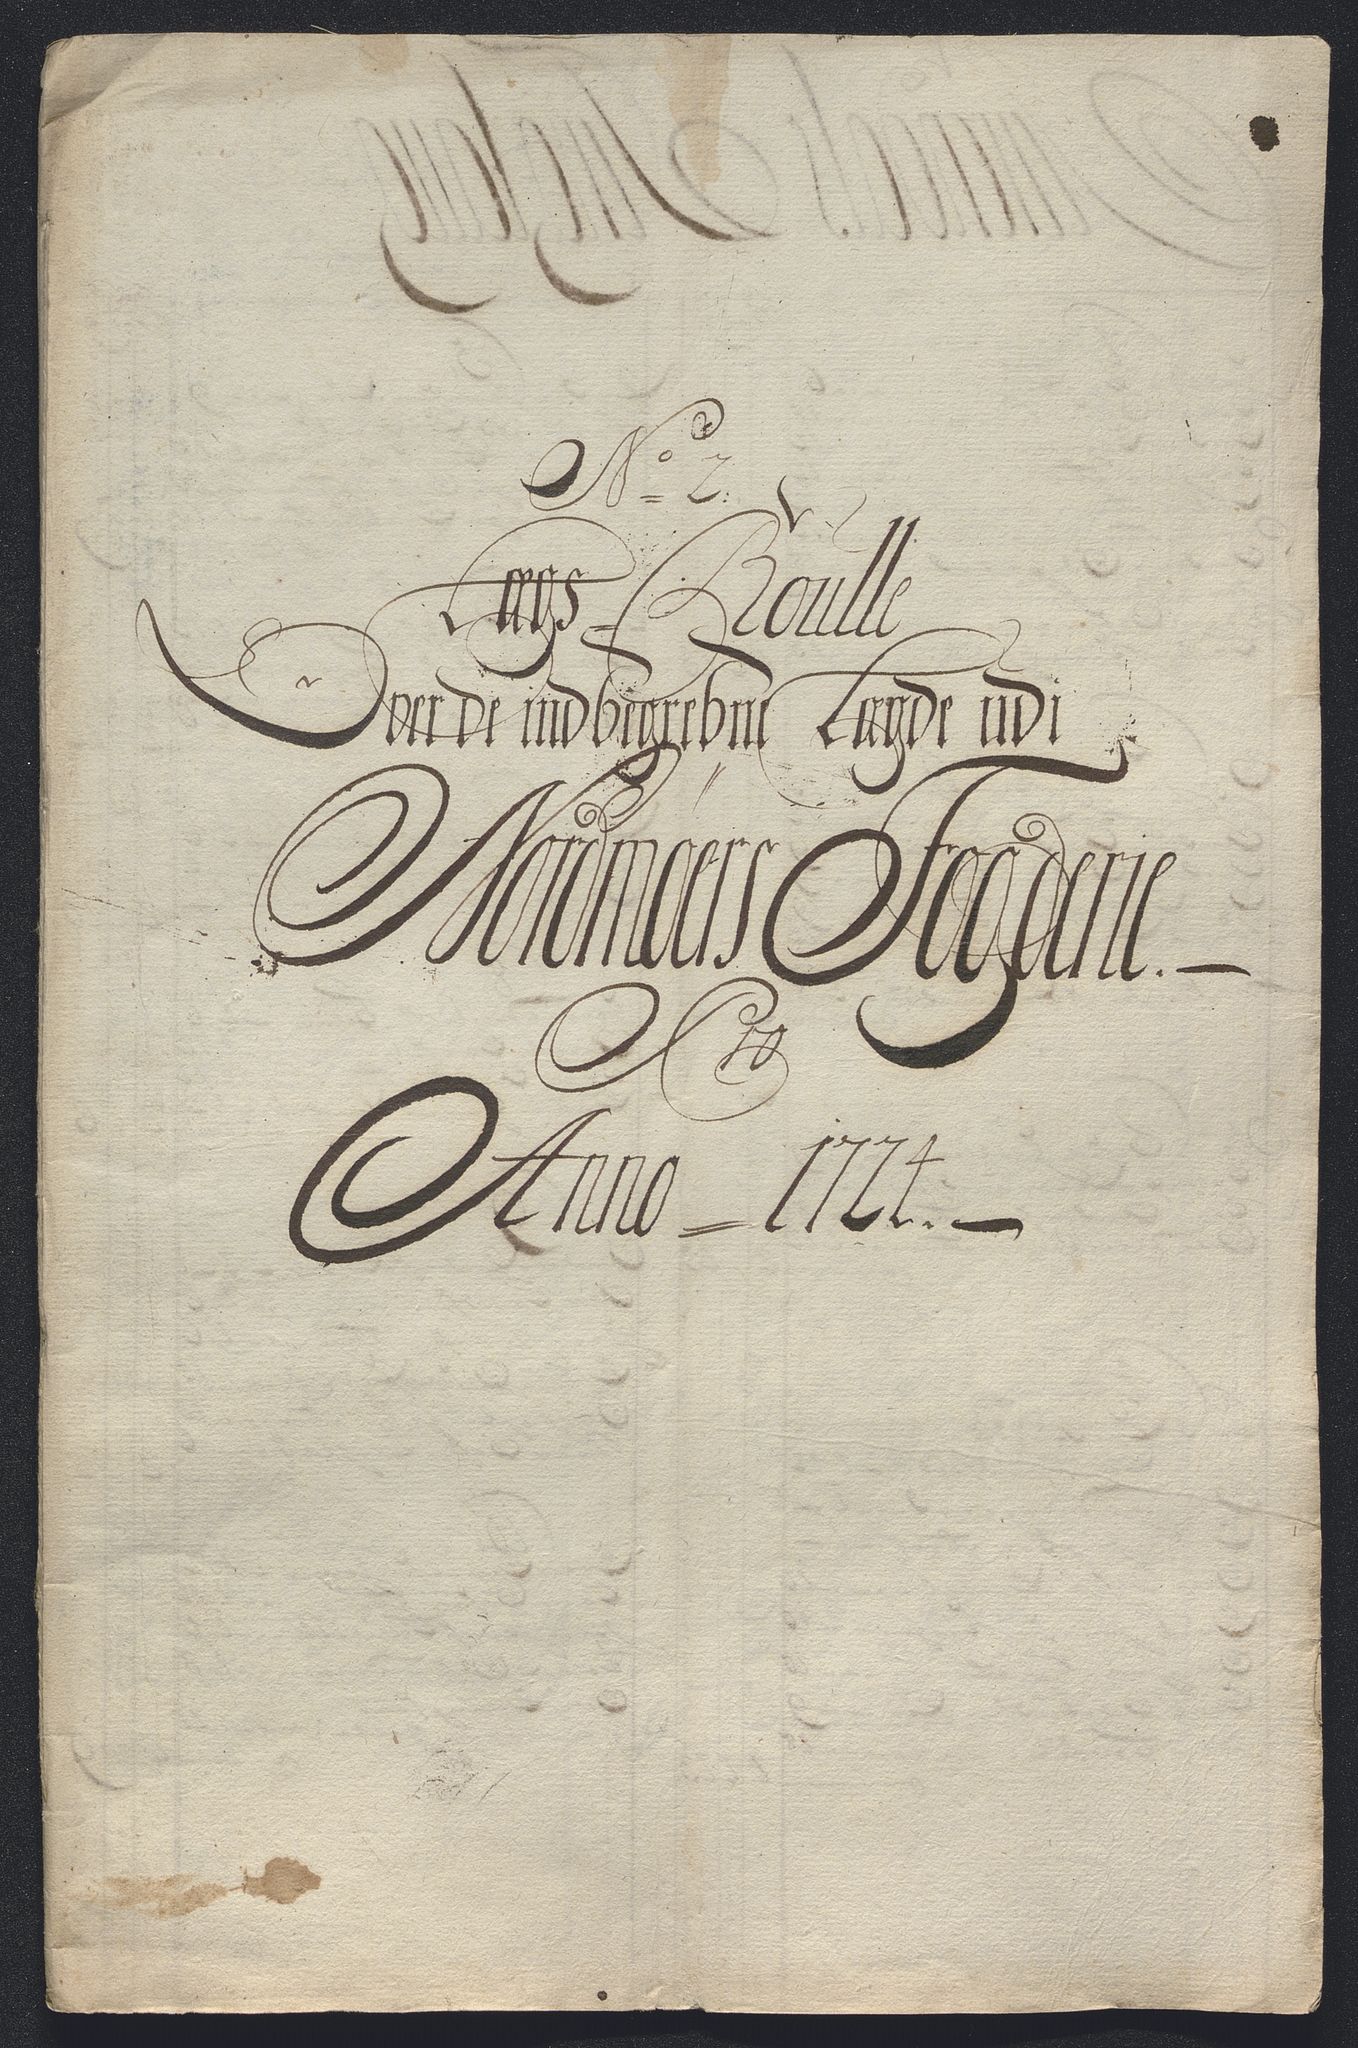 No 2.
Lægs-Roulle
Over de indbegrebne Lægde udi
Nordmøers Fogderie.
Pro
Anno = 1724.